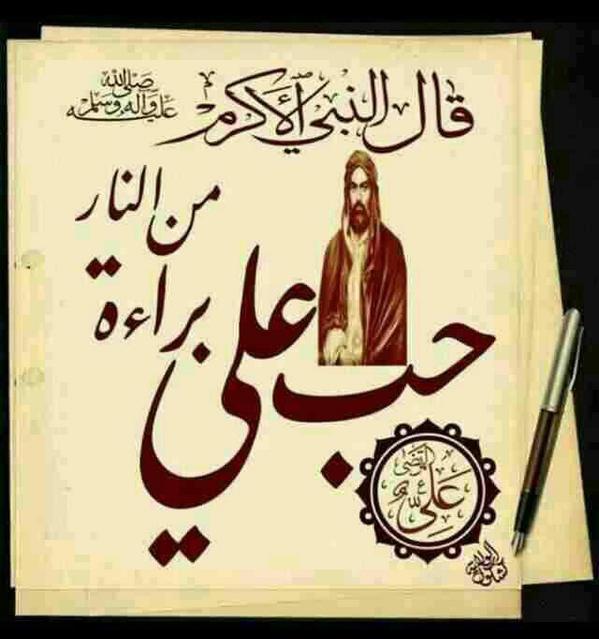 قال النبي الأكرم
صلى الله
عليه وآله وسلم
حب علي براءة
من النار
المرتضى
علي